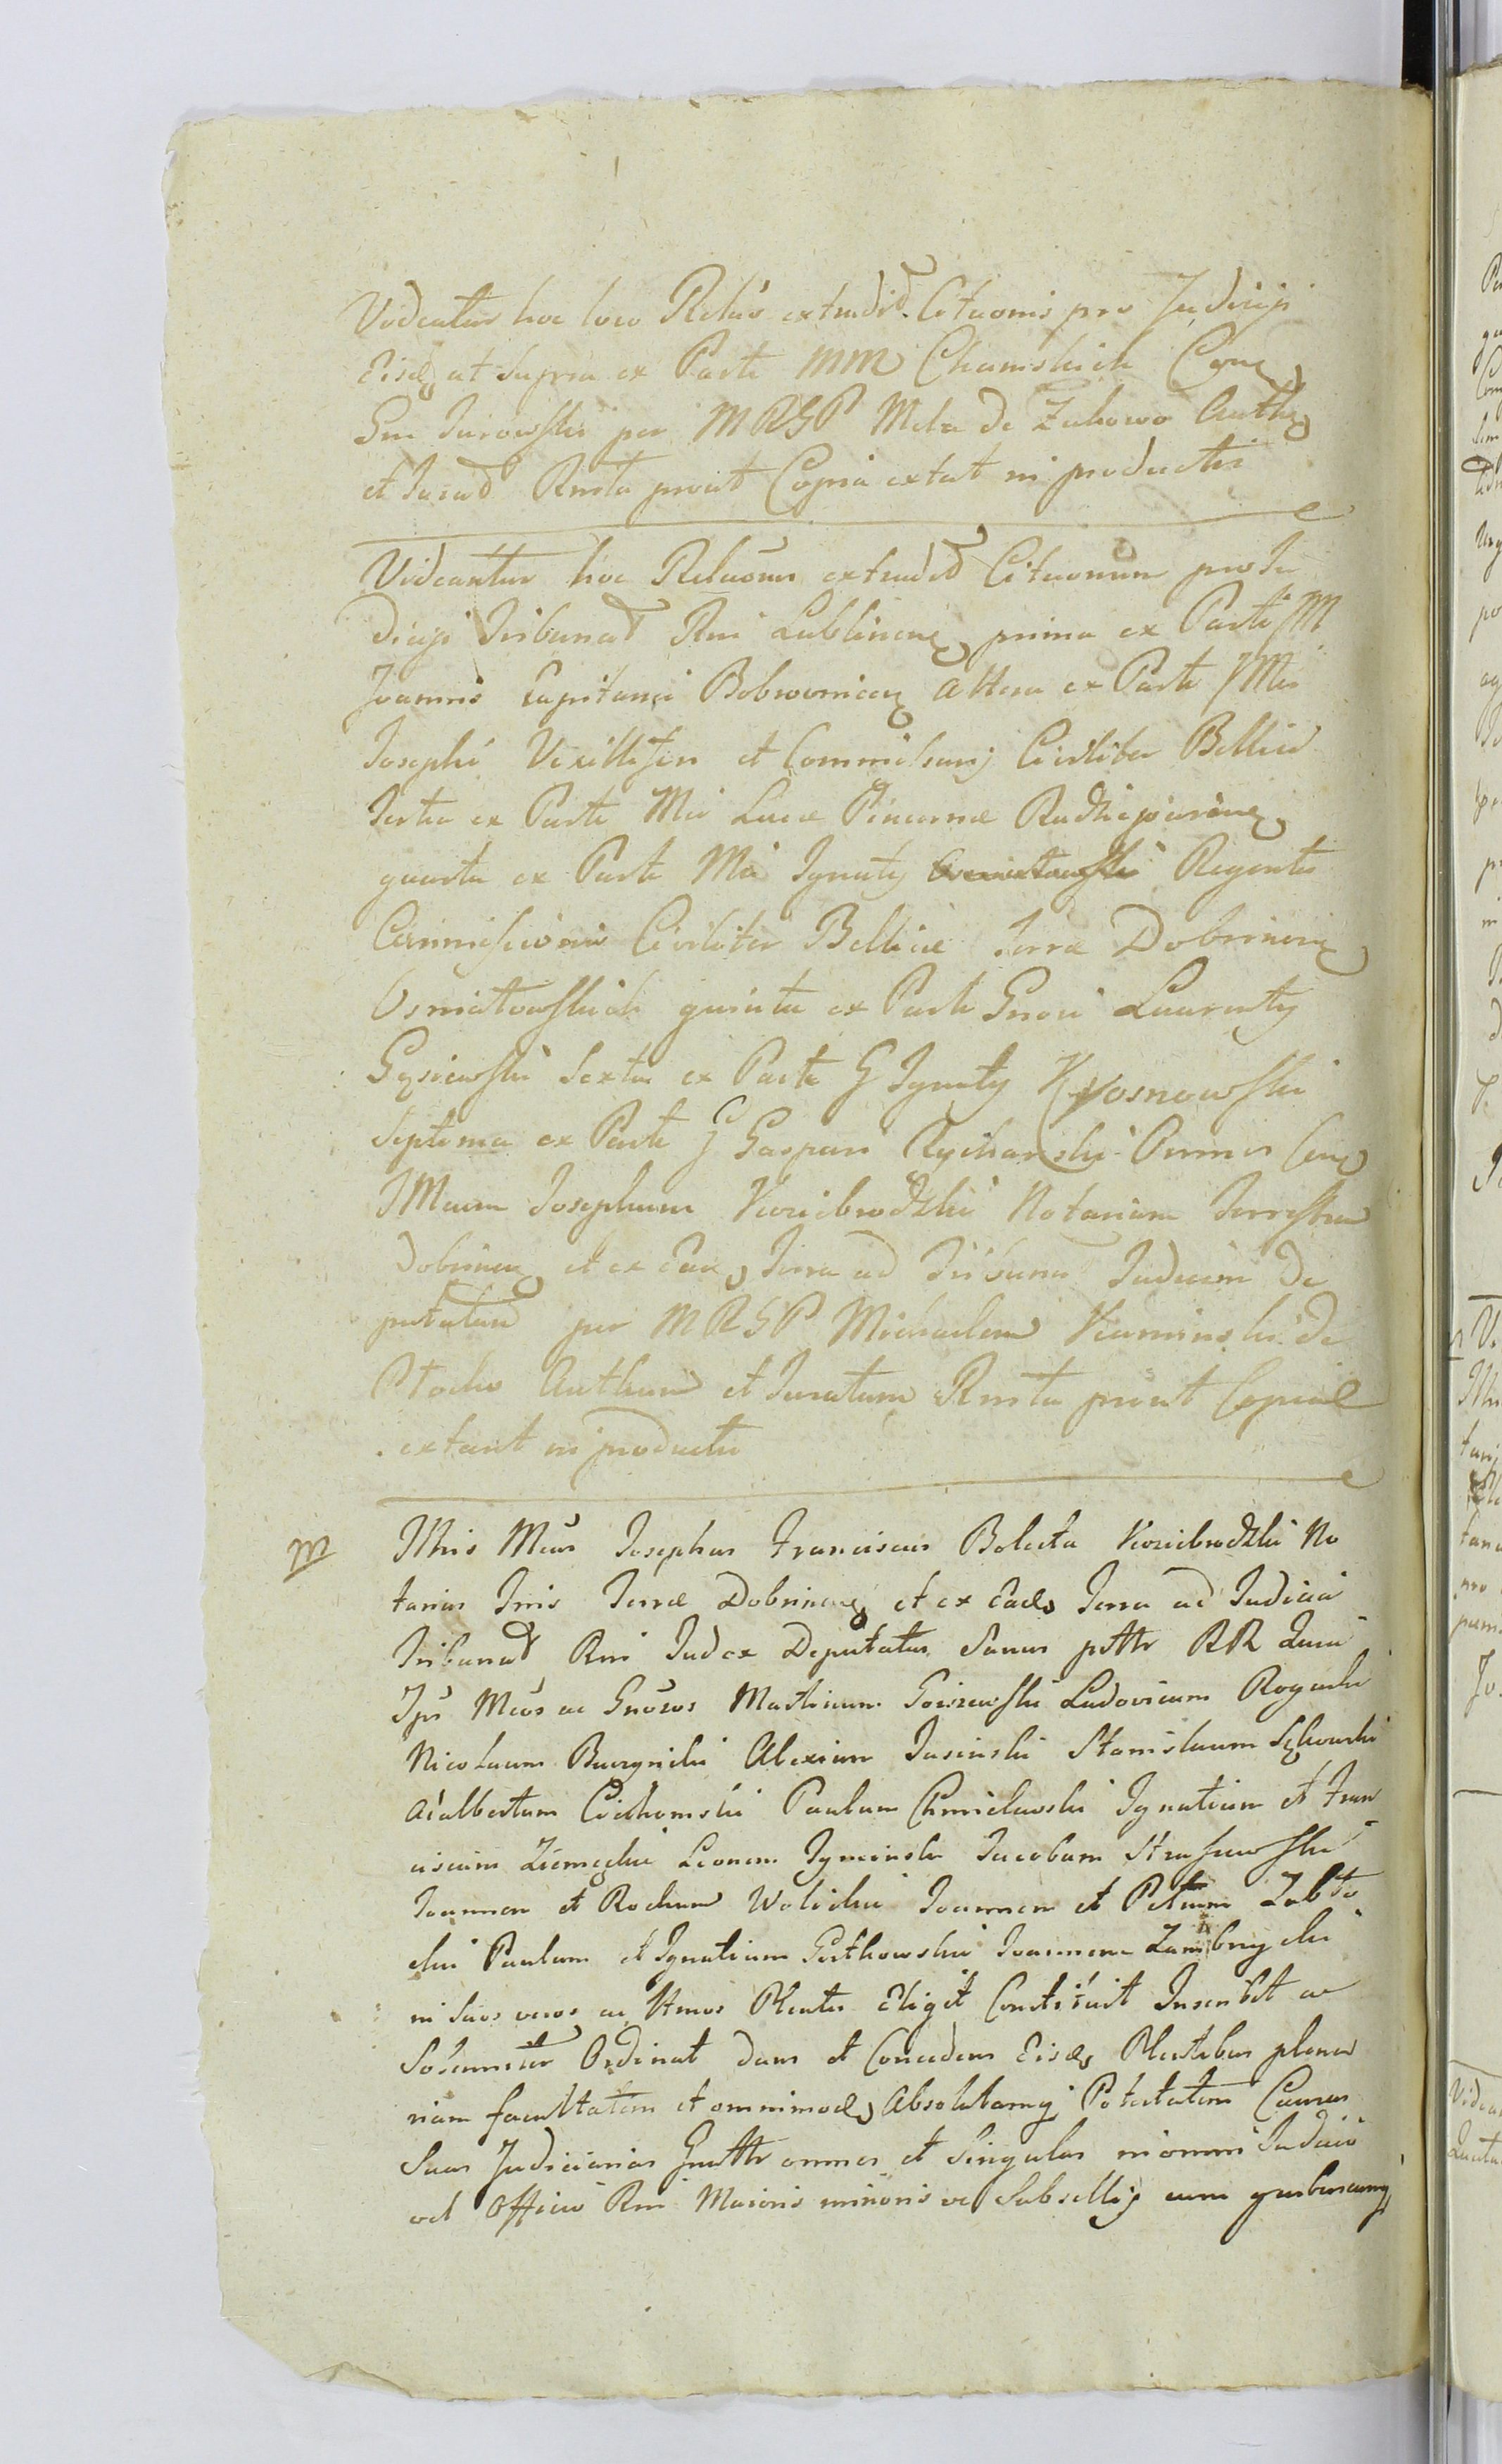 Videatur hoc loco Relaõ extradit. Cituonis pro Judicijs
Eisdẽ ut supra ex Parte MM Chamskich Conẽ
Gm Jurowski per MRGP Mela de Zukowo Authẽ
et Jurad Rnsta prout Copia extat in productis
Videantur hoc Relaõnes extradit Cituonum pro Ju
dicijs Tribunal Rni Lublinenẽ prima ex Parte JM
Joannis Capitanei Bobrovnicenẽ altera ex Parte JMei
Josephi Vexilliferi et Commissarij Civiliter Bellici
Tertia ex Parte Mei Lucæ Pincernæ Radziejovienẽ
quarta ex Parte Mei Ignatij Regentis
Commissionis Civiliter Bellicæ Terræ Dobrinenẽ
Osmiałowskich quinta ex Parte Gnosi Laurentij
Gąsiewski Sexta ex Parte G Ignatij Kłosnowski
Septima ex Parte G Gaspari Rycharski Omnes Conẽ
JMeum Josephum Kozicbrodzki Notarium Terrestrem
Dobrinenẽ et ex Eadẽ Terra ad Tribunal Judicem De
putatum per MRGP Michaelem Kaminski de
Płocko Authum et Juratum Rnsta prout Copiæ
extant in productis
m Jllris Meus Josephus Franciscus Bolesta Kozicbrodzki No
tarius Trris Terræ Dobrinenẽ et ex Eadẽ Terra ad Judicia
Tribunal Rni Judex Deputatus Sanus pttr RR Quia
Ips Meos ac Gnosos Mathæum Goiszewski Ludovicum Rogucki
Nicolaum Buczynski Alexium Jasinski Stanislaum Sękowski
Adalbertum Cichomski Paulum Chmielewski Ignatium et Fran
ciscum Ziemęcki Leonem Zyminski Jacobum Straszewski
Joannem et Rochum Wolicki Joannem et Petrum Zabło
cki Paulum et Ignatium Gutkowski Joannem Zambrzycki
in Suos veros ac lttmos Plentes Eligit Constituit Inscribit ac
Solenniter Ordinat dans et Concedens Eisdẽ Plentibus plena
riam facultatem et omnimodẽ Absolutamq Potestatem Causas
Suas Judiciarias Gnttr omnes et Singulas in omni Judicio
vel Officio Rni Maioris minoris ve Subsellij cum quibuscunq